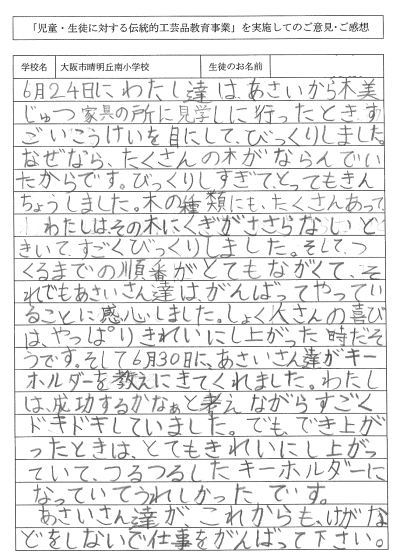 「児童・生徒に対する伝統的工芸品教育事業」を実施してのご意見・ご感想
学校名 大阪市晴明丘南小学校 生徒のお名前
6月24日にわたし達は、あさいから木美
じゅつ家具の所に見学しに行ったとき、す
ごいこうけいを目にして、びっくりしました。
なぜなら、たくさんの木がならんでい
たからです。びっくりしすぎて、とってもきん
ちょうしました。木の種類にも、たくさんあって
わたしは、その木にくぎがささらないと
きいて、すごくびっくりしました。そして、つ
くるまでの順番がとてもながくて、そ
れでもあさいさん達はがんばってやってい
ることに感心しました。しょく人さんの喜び
は、やっぱりきれいにし上がった時だそ
うです。そして6月30日に、あさいさん達がキー
ホルダーを教えにきてくれました。わたし
は、成功するかなぁと考えながらすごく
ドキドキしていました。でも、でき上が
ったときは、とてもきれいにし上がっ
ていて、つるつるしたキーホルダーに
なっていてうれしかったです。
あさいさん達がこれからも、けがな
どをしないで仕事をがんばって下さい。